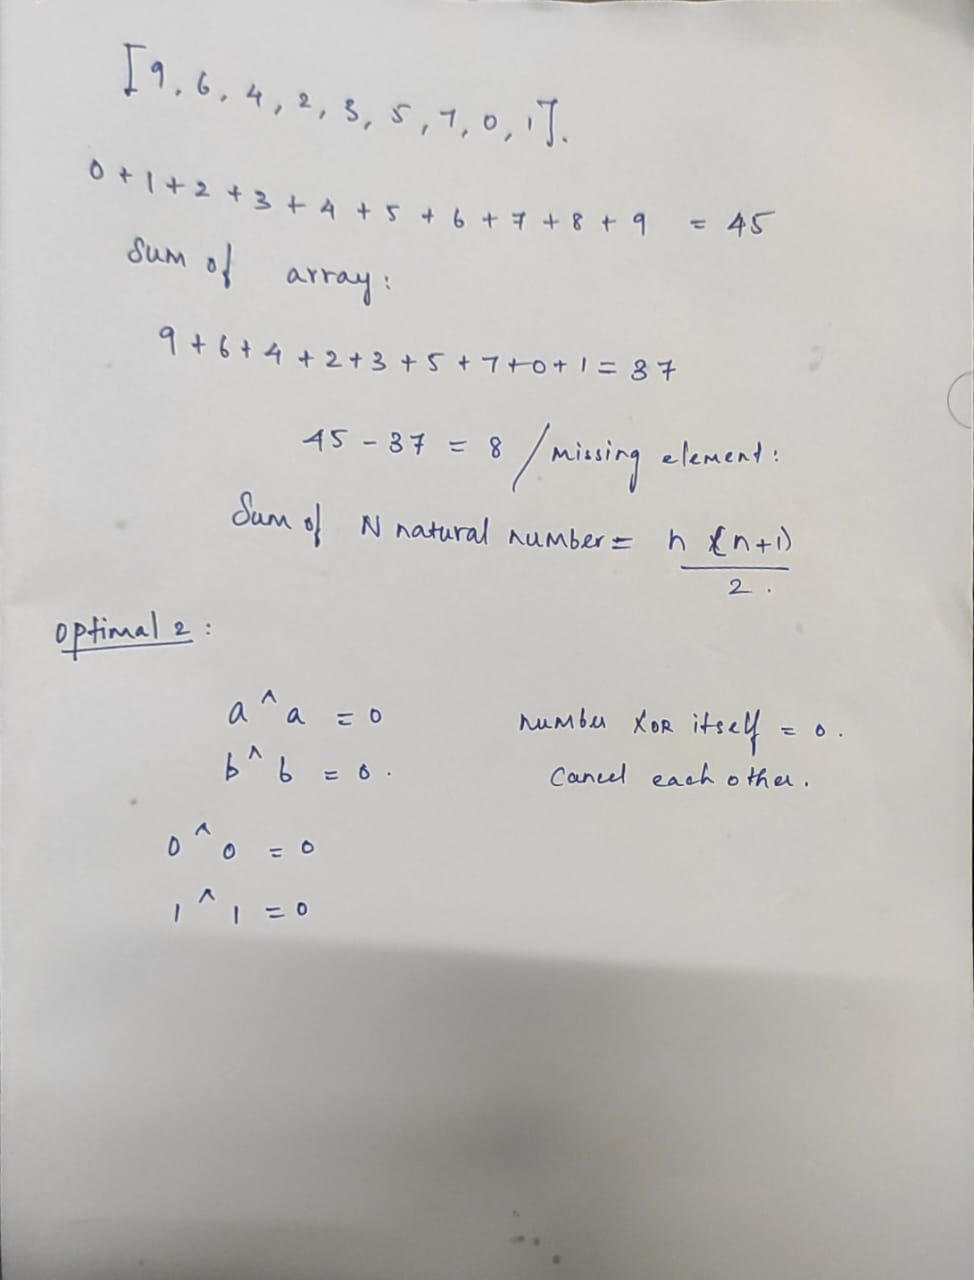 [9, 6, 4, 2, 3, 5, 7, 0, 1].
0 + 1 + 2 + 3 + 4 + 5 + 6 + 7 + 8 + 9 = 45
Sum of array :
9 + 6 + 4 + 2 + 3 + 5 + 7 + 0 + 1 = 37
45 - 37 = 8 / missing element :
Sum of N natural number = n (n+1)
2 .
optimal 2 :
a ^ a = 0 number XOR itself = 0 .
b ^ b = 0 . Cancel each other .
0 ^ 0 = 0
1 ^ 1 = 0